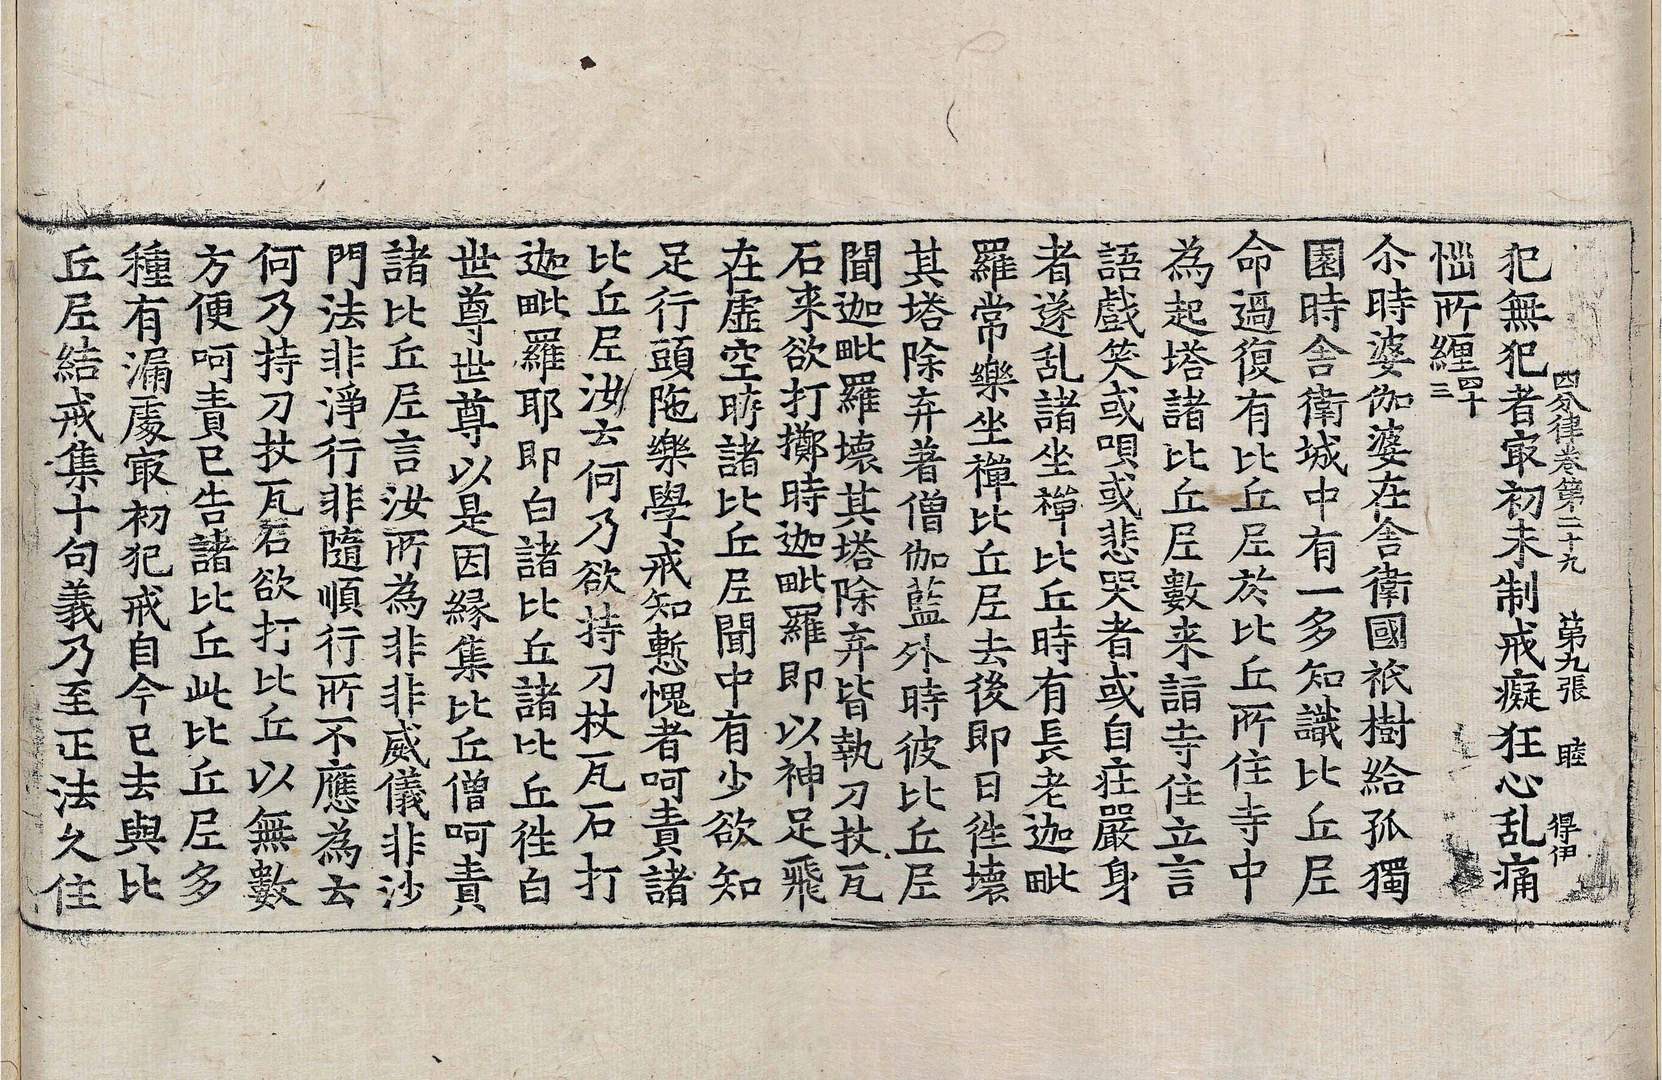 四分律卷第二十九 第九張 睦 得伊
犯無犯者㝡初未制戒癡狂心乱痛
惱所纏四十三
尒時婆伽婆在舍衛國祇樹給孤獨
園時舍衛城中有一多知識比丘尼
命過復有比丘尼於比丘所住寺中
為起塔諸比丘尼數来詣寺住立言
語戲笑或唄或悲哭者或自庄嚴身
者遂乱諸坐禪比丘時有長老迦毗
羅常樂坐禪比丘尼去後即日往壞
其塔除弃著僧伽藍外時彼比丘尼
聞迦毗羅壞其塔除弃皆執刀杖瓦
石来欲打擲時迦毗羅即以神足飛
在虛空時諸比丘尼聞中有少欲知
足行頭陁樂學戒知慙愧者呵責諸
比丘尼汝云何乃欲持刀杖瓦石打
迦毗羅耶即白諸比丘諸比丘往白
世尊世尊以是因緣集比丘僧呵責
諸比丘尼言汝所為非非威儀非沙
門法非淨行非隨順行所不應為云
何乃持刀杖瓦石欲打比丘以無數
方便呵責已告諸比丘此比丘尼多
種有漏處㝡初犯戒自今已去與比
丘尼結戒集十句義乃至正法久住